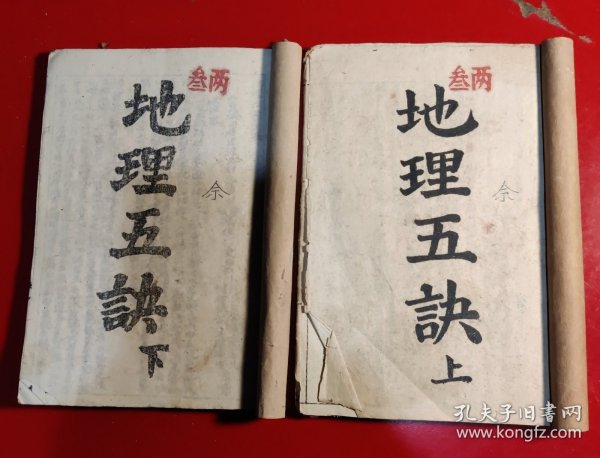 叁两
地理五訣
下
佘
叁两
地理五訣
上
佘
孔夫子旧书网
www.kongfz.com